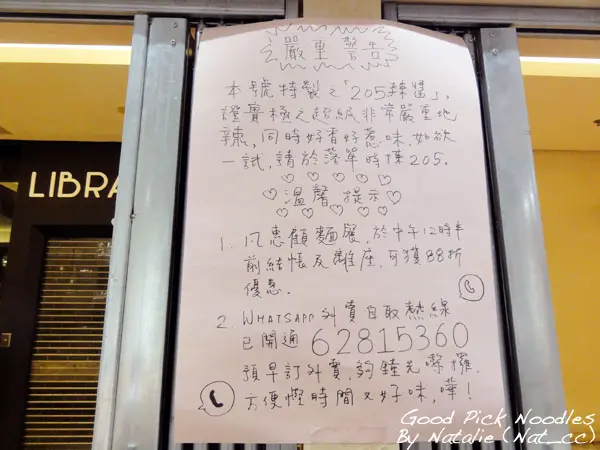 LIBRA
嚴重警告
本號特製之「205辣醬」,
證實極之超級非常嚴重地
辣,同時好香好惹味,如欲
一試,請於落單時揀205.
溫馨提示
1. 凡惠顧麵餐,於中午12時半
前結帳及離座,可獲88折
優惠.
2. WHATSAPP外賣自取熱線
已開通 62815360
預早訂外賣,夠鐘先嚟攞.
方便慳時間又好味,嘩!
Good Pick Noodles
By Natalie (Nat_cc)